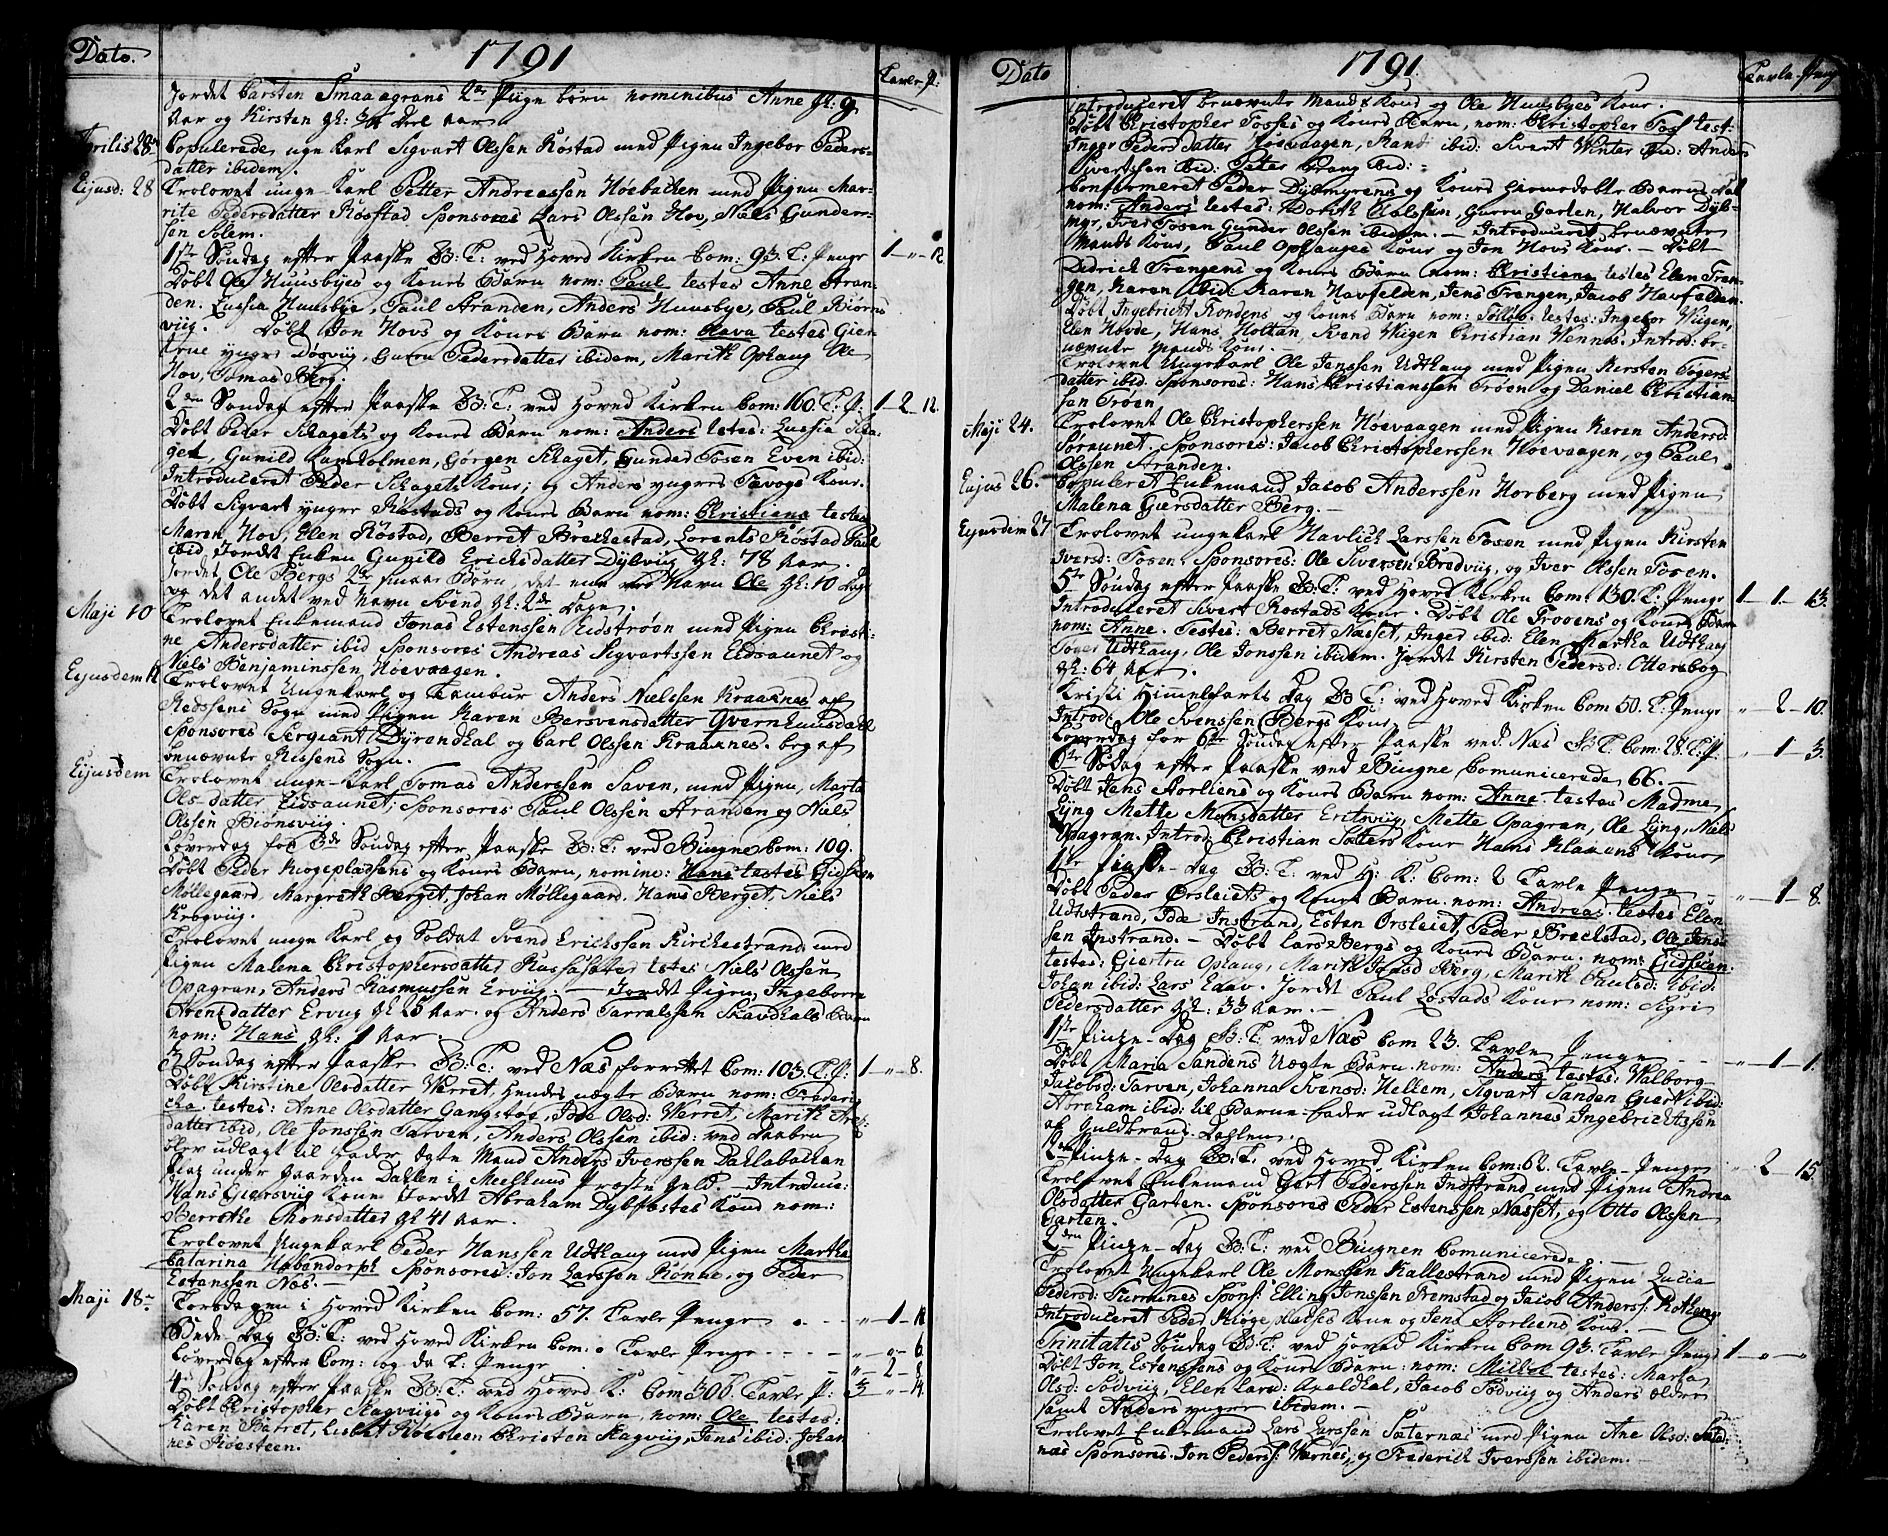 Dato. 1791 Tavle P:
Jordet Carsten Smaaegrans 2de Piige børn nominibus Anne gl: 9
Aar og Kirsten gl: Aar
Aprilis 28 Copulerede unge Karl Sigvart Olssen Røstad med Pigen Ingebor Peders-
datter ibidem.
Ejusd: 28 Trolovet unge-Karl Petter Andreassen Høebakken med Pigen Mar-
rite Pedersdatter Røstad Sponsores Lars Olssen Hov, Niels Gunder-
sen Solem.
1ste Søndag efter Paaske B: T: ved Hoved Kirken Com: 93 T: Penge 1 " 12
Døbt Ole Huusbyes og Kones Barn nom: Paul testes Anne Stran-
den. Lussia Huusbye, Paul Stranden, Anders Huusbye, Paul Biørn-
viig. Døbt Jon Hovs og Kones Barn nom: Olava testes Gier-
true yngre Døsviig, Gurru Pedersdatter ibidem, Marith Ophaug Ole
Hov, Tomas Berg.
2den Søndag efter Paaske B: T: ved Hoved Kirken Com: 160. T: P: 1 2 12.
Døbt Peder Skagets og Kones Barn nom: Anders testes: Lussia Ska-
get, Gunild Kamholmen, Gørgen Skaget, Gunder Tosen Even ibid:
Introduceret Peder Skagets Kone, og Anders yngres Kone.
Døbt Sigvart yngre Røstads og Kones Barn nom: Christiana testes
Maren Hov, Elen Røstad, Berret Brechestad, Lorents Røstad Paul
ibid, Jordet Enken Gunild Erichsdatter Dybviig gl: 78 Aar.
Jordet Ole Bergs 2de smaae Børn, det ene ved Navn Ole gl: 10 Dage
og det andet ved navn Svend gl: 2de Dage.
Maji 10 Trolovet Enkemand Jonas Estenssen Eidstrøen med Pigen Christi-
ne Andersdatter ibid Sponsores Andreas Sigvartssen Eidsaunet og
Niels Benjaminssen Høevaagen.
Ejusdem 12 Trolovet Ungekarl og Tambur Anders Nielssen Kraaknes af
Sogn med Pigen Karen Bersvensdatter Qvernhuusdahl
Sponsores Sergiant Dyrendhal og Carl Olssen Kraaknes. beg af
benævnte Rissens Sogn.
Eijusdem Trolovet unge-Karl Tomas Anderssen Saven, med Pigen, Marta
Ols-datter Eidsaunet; Sponsores Paul Olssen Stranden og Niels
Olssen Biønsviig.
Løverdag for 3de Søndag efter Paaske B: T: ved Biugne Com: 109.
Døbt Peder Krogepladsens og Kones Barn, nomine: Hans testes
Møllegaard, Margreth Berget, Johan Møllegaard. Hans Berget, Niels
Krogviig.
Trolovet unge Karl og Soldat Svend Erichssen Kirchestrand med
Pigen Malena Christophersdatter testes Niels Olssen
Opagran, Anders Rasmussen Erviig. — Jordet Pigen Ingeborre
Arensdatter Erviig gl 25 Aar. og Anders Tarralssen Skavdhals Barn
nom: Hans gl: 1 Aar
3 Søndag efter Paaske B: T: ved Næs forrettet Com: 103 T: P: 1 " 8.
Døbt Kirstine Olsdatter Werret, hendes uægte Barn nom: Frederi-
cka testes: Anne Olsdatter Gangstøe, Ide Olsd: Werret, Marith
datter ibid, Ole Jonssen Tarven, Anders Olssen ibid: ved daaben
blev udlagt til fader, ægte Mand Anders Iverssen Dahlabakken
Plas under gaarden Dahlen i Meelhuus Præste Geld. — Introduce:
Hans Giersviig Kone Jordet Abraham Dybfestes Kone nom:
Berrethe Thonsdatter gl 41 Aar.
Trolovet Ungekarl Peder Hanssen Udthaug med Pigen Martha
Catarina Habendorph Sponsores: Jon Larssen Rønne, og Peder
Estenssen Næs.
Maji 18 Torsdagen i Hoved Kirken Com: 57. Tavle Penge " 1 12
Bede-Dag B: T: ved Hoved Kirken Com: 0 Tavle Penge " " 6
Løverdag efter Com: og da T: Penge " 2 8
4 Søndag efter Paaske B: T: ved Hoved K: Com 300 Tavle P: 3 " 14.
Døbt Christopher Skagviigs og Kones Barn, nom: Ole testes:
Karen Barret, Lisbet Christen Skagviig, Jens ibid: Johan-
nes Røesteen.
Dato 1791. Tavle Penge
Introduceret benævnte Mands Kone og Ole Huusbyes Kone.
Døbt Christopher Fosses og Kones Barn, nom: Christopher Fos test:
Inger Pedersdatter Høevaagen, Rand ibid: Sivert Winter ibid: Anders
Sivertsen ibid: Peter Prang ibid:
Confirmeret Peder Dybmyrens og Kones hiemedøbte Barn
nom: Anders testes: Dorith Gurru Garten, Halvor Dyb-
myr, Iver Tosen Gunder Olssen ibidem. — Introduceret benævnte
Mands Kone, Paul Ophauges Kone og Jon Hovs Kone. — Døbt
Didrich Trangens og Kones Barn nom: Christiana testes Elen Tran-
gen, Karen ibid Karen Havfelden, Jens Trengen, Jacob Havfelden.
Døbt Ingebricht Rondens og Kones Barn nom: testes: Ingebor Wiigen,
Elen Hovde, Hans Holtan, Svend Wiigen Christian Wennes. Introd: be-
nævnte Mands Kone.
Trolovet Ungekarl Ole Jenssen Udthaug med Pigen Kirsten Togers-
datter ibid Sponsores: Hans Christianssen Trøen og Daniel Christian-
sen Trøen
Maji 24. Trolovet Ole Christopherssen Høevaagen med Pigen Karen Andersd
Søraunet, Sponsores: Jacob Christopherssen Høevaagen, og Paul
Olssen Stranden.
Eijus 26. Copuleret Enkemand Jacob Anderssen Norberg med Pigen
Malena Giersdatter Berg. —
Ejusdem 27 Trolovet ungekarl Havlich Larssen Tosen med Pigen Kirsten
Iversd: Tosen. Sponsores: Ole Iversen Bredviig, og Iver Olssen Tosen.
5te Søndag efter Paaske B: T: ved Hoved Kirken Com: 130. T: Penge 1 1 13.
Introduceret Sivert Røstads Kone. Døbt Ole Troens og Kones Barn
nom: Anne. Testes: Berret Næsset, Inger ibid: Elen Martha Udthaug
Udthaug, Ole Jonssen ibidem. Jordet Kirsten Pedersd: Ottersbog
gl: 64 Aar.
Kristi Himelfarts Dag B: T: ved Hoved Kirken Com 50. T: Penge " 2 10.
Introd: Ole Svenssen Bergs Kone
Løverdag for 6te Søndag efter Paaske ved Næs B: T: Com: 28. T: P: " 1 3.
6te Sødag efter Paaske ved Biugne Comunicerede 66. —
Døbt Jens Storliens og Kones Barn nom: Anne. testes Madme
Lyng Mette Monsdatter Eritsviig, Mette Opagran, Ole Lyng, Niels
Opagran. Introd: Christian Kone Hans Klakens Kone
1ste Pintse-Dag B: T: ved H: K: Com: 2 Tavle Penge — " 1 8.
Døbt Peder Ørsleiets og Kones Barn. nom: Andreas. testes Elen
Udtstrand, Ide Instrand, Esten Orsleiet, Peder Brechstad, Ole Jens-
sen Instrand. — Døbt Lars Bergs og Kones Barn. nom: Gidsken.
testes: Giertru Ophaug, Marith Jonsd Berg, Marith Paulsd: ibid:
Johan ibid: Lars Jordet Paul Løstads Kone nom: Sigri
Pedersdatter gl: 33 Aar. —
1ste Pintze-Dag B: T: ved Næs Com 23. Tavle Penge " 1 1.
Døbt Maria Sandens Uægte Barn. nom: Anders testes: Walborg
Jacobsd: Tarven, Johanna Svensd: Hellem, Sigvart Sanden Giert ibid:
Abraham ibid: til Barne-fader udlagt Johannes Ingebrichtssen
af Guldbrands-Dahlen.
2den Pintze-Dag B: T: ved Hoved Kirken Com: 62. Tavle-Penge " 2 15.
Trolovet Enkemand Gert Pederssen Indstrand med Pigen Andrea
Olsdatter Garten. Sponsores Peder Estenssen Næsset, og Otto Olssen
Garten.
2den Pintze-Dag B: T: ved Biugnen Comunicerede. —
Trolovet Ungekarl Ole Monssen Kallestrand med Pigen Lucia
Pedersd: Turrines Spons: Elling Jonssen Fremstad og Jacob Anders: Kothaug
Introduceret Peder Kone og Jens Storliens Kone. —
Trinitatis Søndag B: T: ved Hoved Kirken Com 93. Tavle Penge 1 " "
Døbt Jon Estenssens og Kones Barn: nom: Mikkel testes: Marta
Olsd: Sødviig, Elen Larsd: Areldhal, Jacob Sødviig og Anders ældre
samt Anders yngre ibidem. —
Trolovet Enkemand Lars Larssen Sæternæs med Pigen Ane Olsd: Sæter-
næs Sponsores. Jon Peders: Wærnes, og Frederich Iverssen ibidem. —